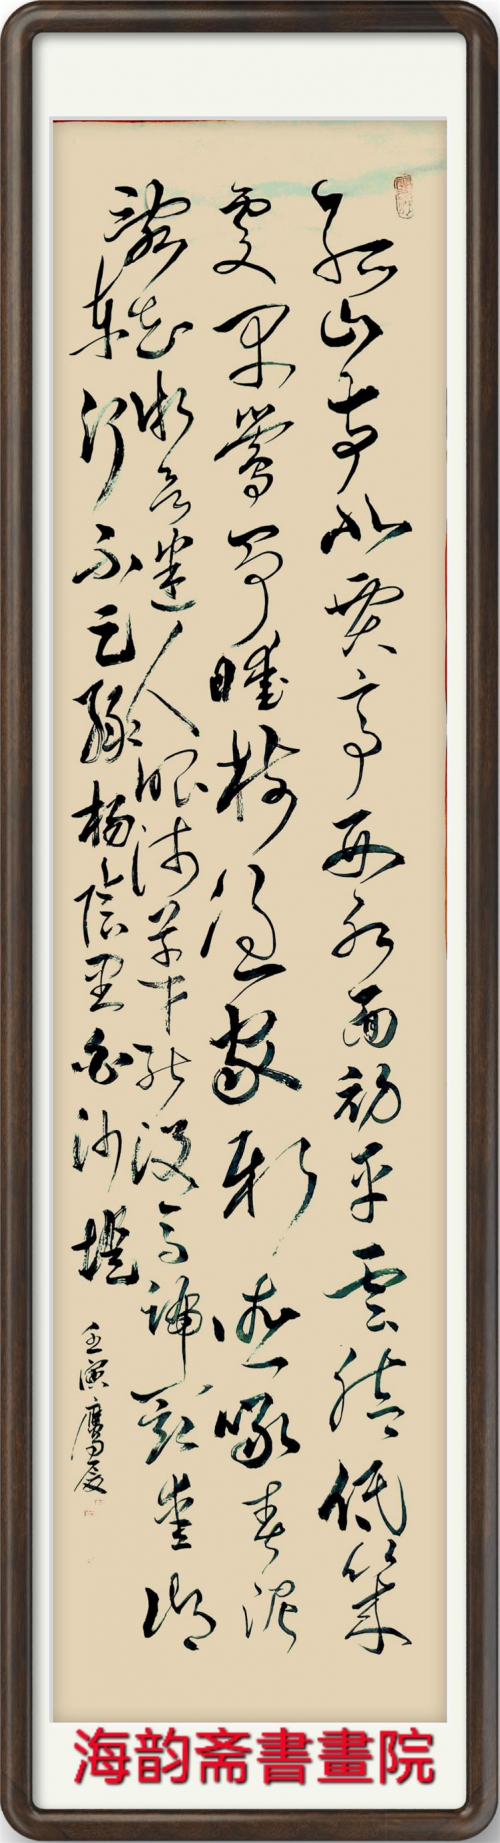 孤山寺北賈亭西水面初平雲腳低幾
處早鶯爭暖樹誰家新燕啄春泥
亂花漸欲迷人眼淺草才能沒馬蹄最愛湖
東行不足綠楊陰里白沙堤
壬寅
海韵斋書畫院